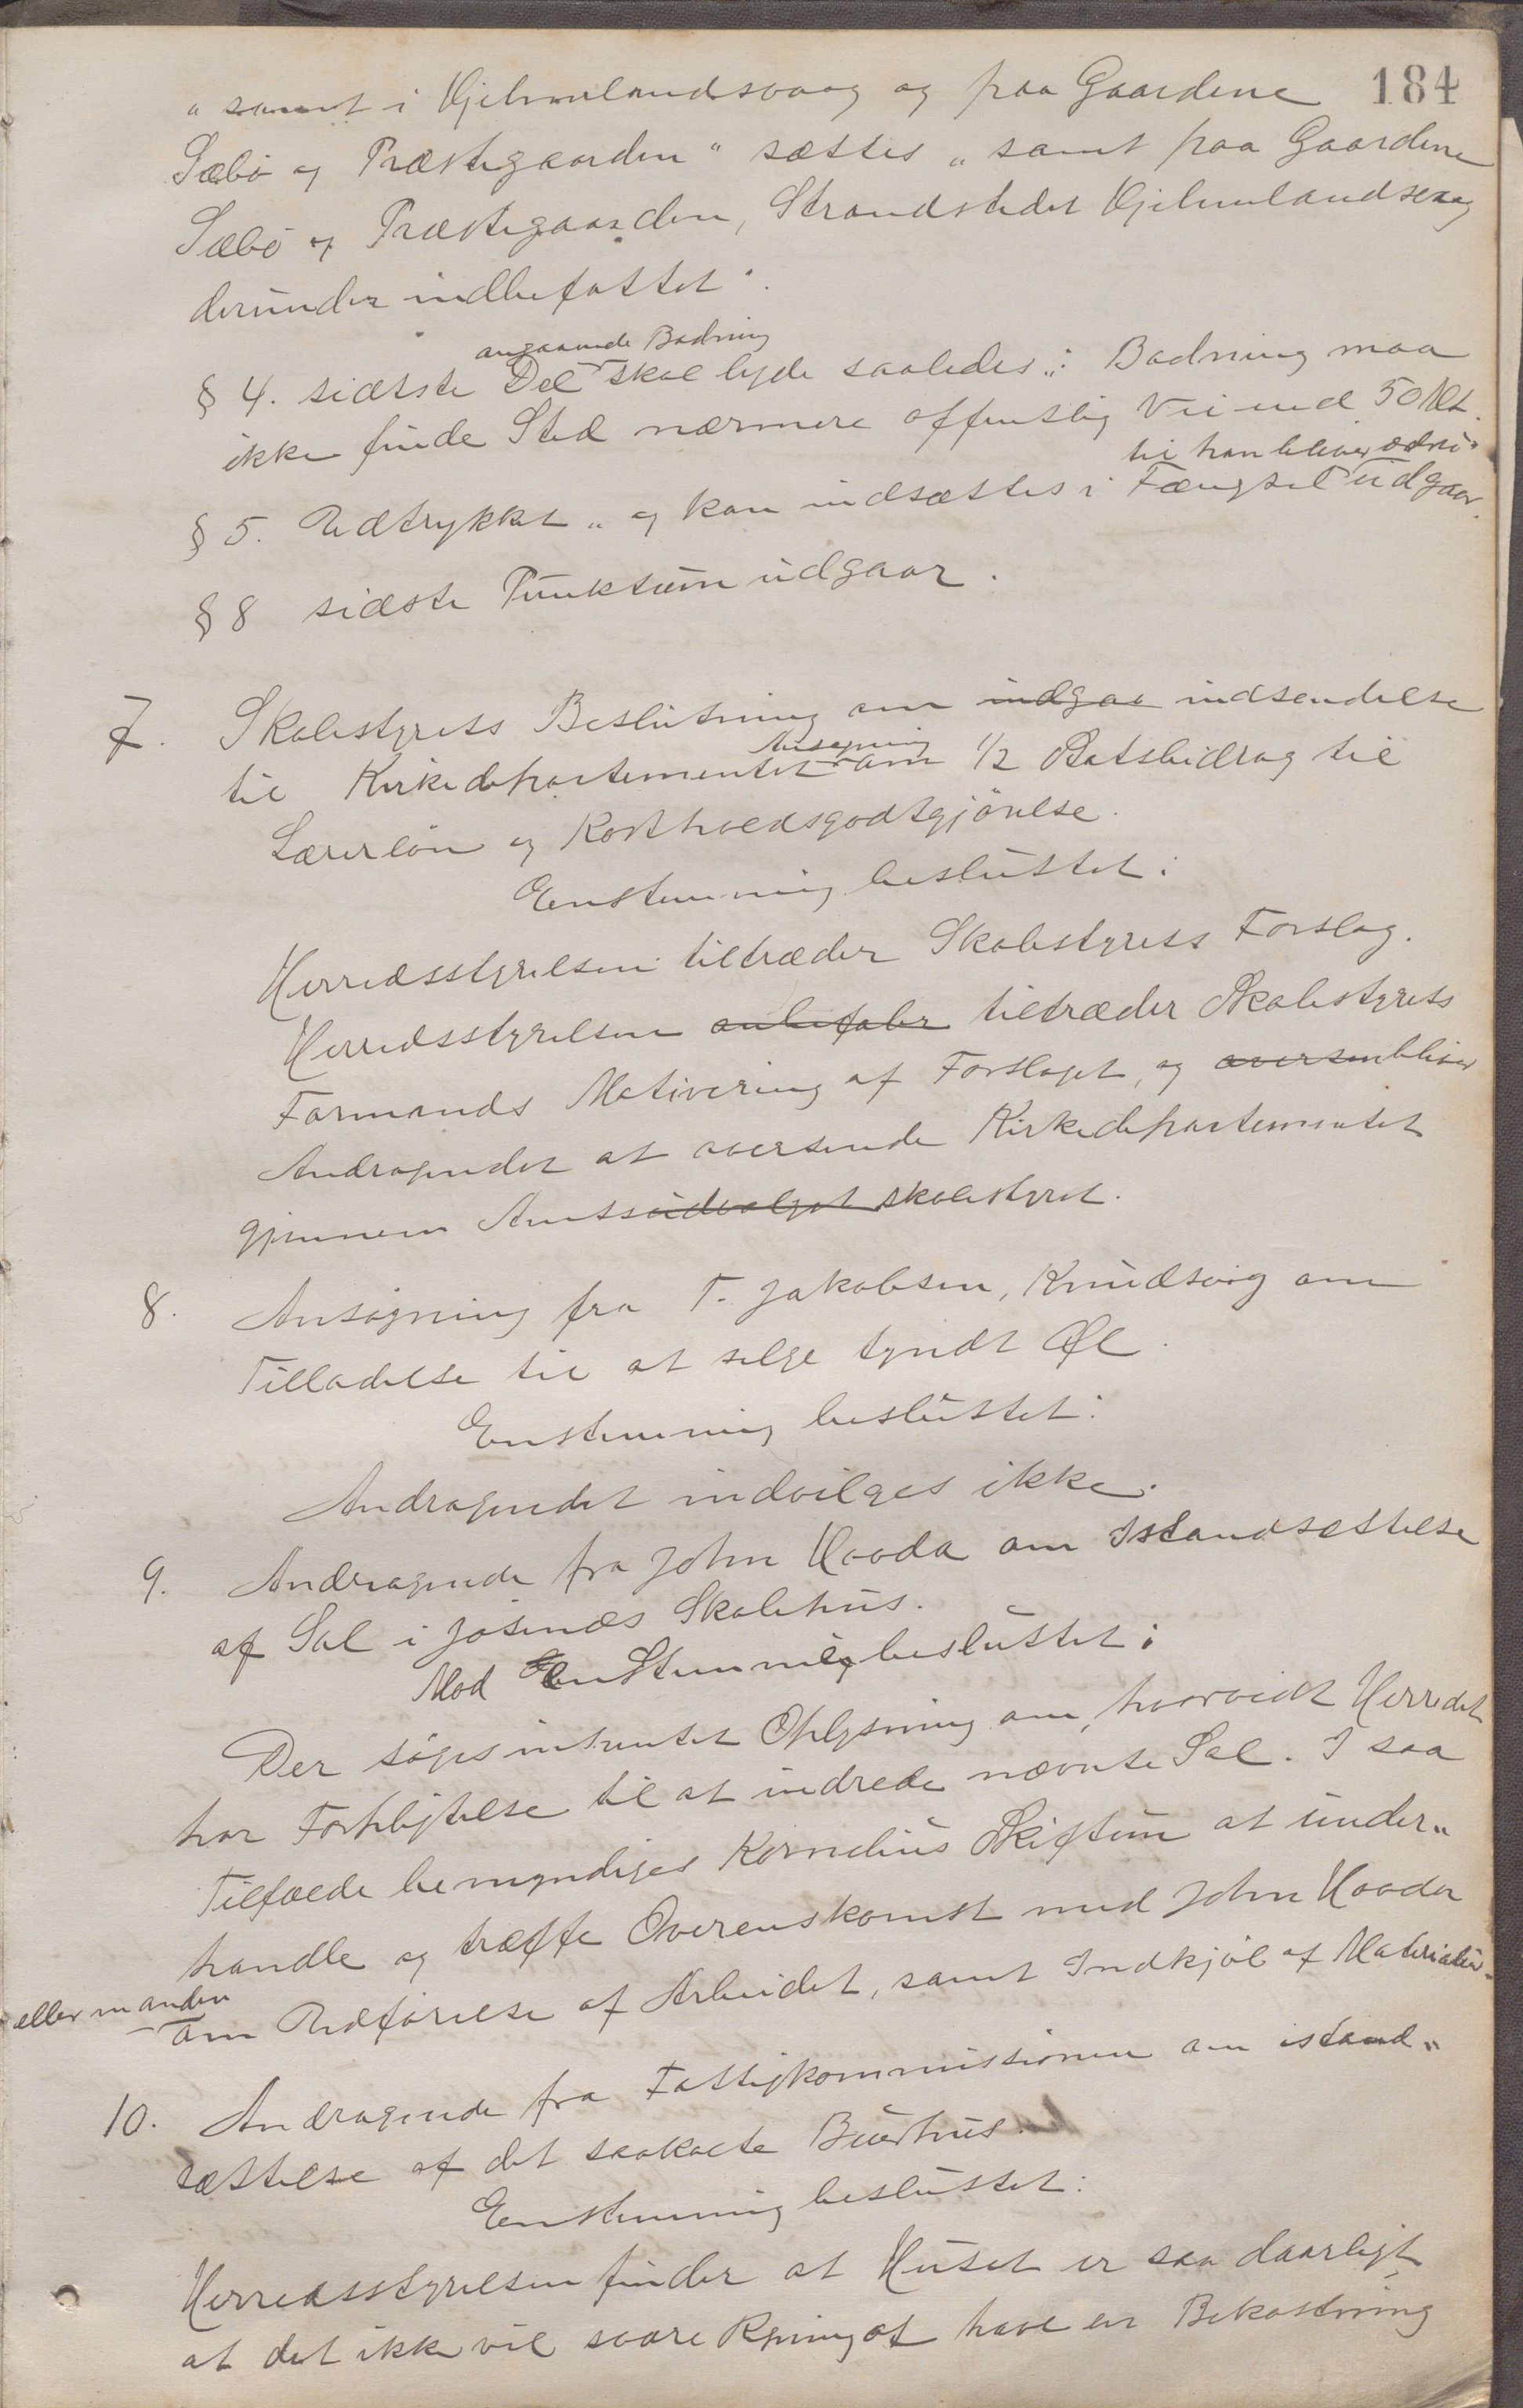 184
„samt i Hjelmelandsvaag og paa Gaardene
Sæbö og Præstegaarden“ sættes „samt paa Gaardene
Sæbö og Præstegaarden, Strandstedet Hjelmelandsvaag
derunder indbefattet“.
angaaende Badning
§ 4. sidste Del skal lyde saaledes: „Badning maa
ikke finde Sted nærmere offentlig Vei end 50 Mt.
til han bliver ædru“
§ 5. Udtrykket „og kan indsættes i Fængsel udgaar.
§ 8 sidste Punktum udgaar.
7. Skolestyrets Beslutning om indgaa indsendelse
Ansøgning
til Kirkedepartementet om 1/2 Statsbidrag til
Lærerlön og Kostholdsgodtgjörelse.
Enstemmig besluttet:
Herredsstyrelsen tiltræder Skolestyrets Forslag.
Herredsstyrelsen anbefaler tiltræder Skolestyrets
Formands Motivering af Forslaget, og oversen bliver
Andragendet at oversende Kirkedepartementet
gjennem Amtsudvalget skolestyret.
8. Ansögning fra T. Jakobsen, Knudsvig om
Tilladelse til at selge tyndt Øl.
Enstemmig besluttet:
Andragendet indvilges ikke.
9. Andragende fra John Haada om Istandsættelse
af Sal i Jösenæs Skolehus.
Mod en Stemme besluttet:
Der söges indhentet Oplysning om, hvorvidt Herredet
har Forpligtelse til at indrede nævnte Sal. I saa
Tilfælde bemyndiges Kornelius Skiftun at under„
handle og træffe Overenskomst med John Haada
eller m anden
om Udförelse af Arbeidet, samt Indkjöb af Materialier.
10. Andragende fra Fattigkommissionen om istand„
sættelse af det saakaldte Buerhus.
Enstemmig besluttet:
Herredsstyrelsen finder at Huset er saa daarligt,
at det ikke vil svare Regning at have en Bekostning